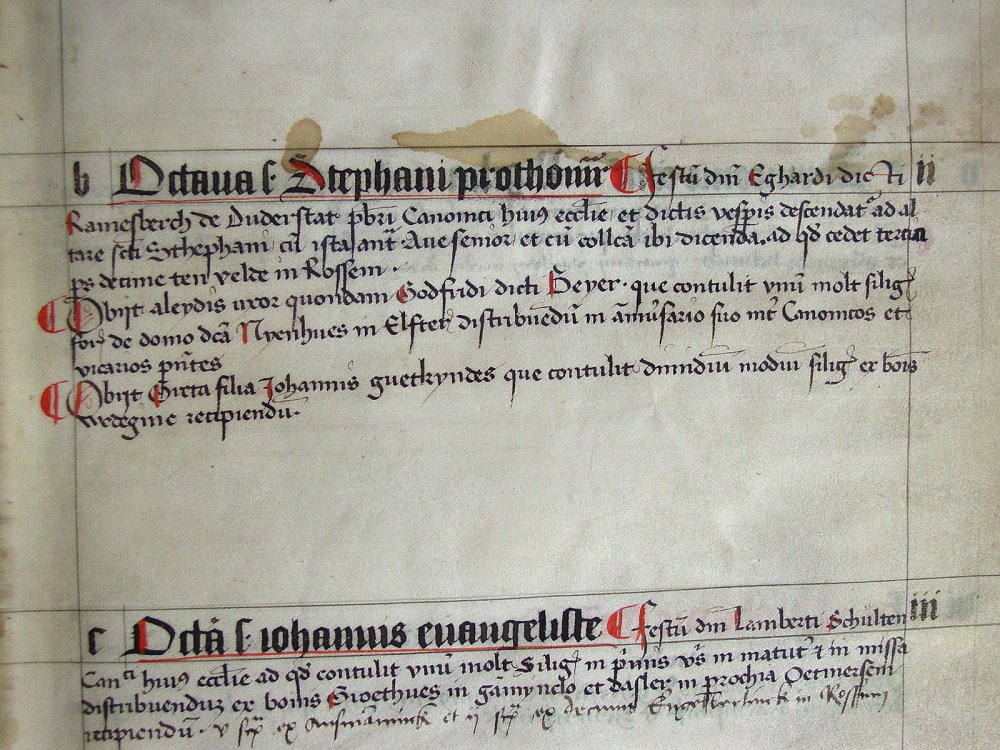 b Octaua s. Stephani prothomr̄ ¶ Festū dn̄i Eghardi dicti ii
Ramesberch de Duderstat pb̄ri Canonici huius eccl̄ie et dictis vesp̄is descendat᷑ ad al
tare sc̄ti Sthephani cū ista ant̄ Aue senior et cū collc̄a ibi dicenda. ad qd̄ cedet tercia
ps decime ten velde in Rossem.
¶ Obijt aleydis uxor quondam Godfridi dicti Heyer. que contulit vnū molt siliḡ
de domo dc̄a Nyenhues in Elfter distribuēdū in ān̄usario suo int̄ Canonicos et
vicarios pn̄tes
¶ Obijt Greta filia Johannis guetkyndes que contulit dimidiū modiū siliḡ ex bonis
wedegine recipiendū.
c Octā s. iohannis euangeliste ¶ Festū dn̄i Lamberti Schulten iii
Can̄ci huius eccl̄ie ad qd̄ contulit vnū molt Siliḡ in p̄mis vs̄ in matut᷑ et in missa
distribuenduz ex bonis Groethues in gāmynclo et dasler in prochia Oetmersem
recipiendū. v scp̄ ex Ausmāninck et ij scp̄ ex decima in Rossum